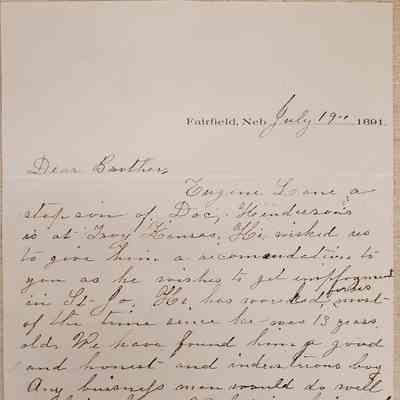 Fairfield, Neb July 19" 1891.
Dear Brother,
Eugene Lane a
step son of Doc, Hinderson's
is at Troy Kansas, He wished us
to give him a recomendation to
you as he wishes to get employment
in St-Jo. He has worked for us most
of the time since he was 13 years
old, We have found him a good
and honest and industrious boy
Any buisness man would do well